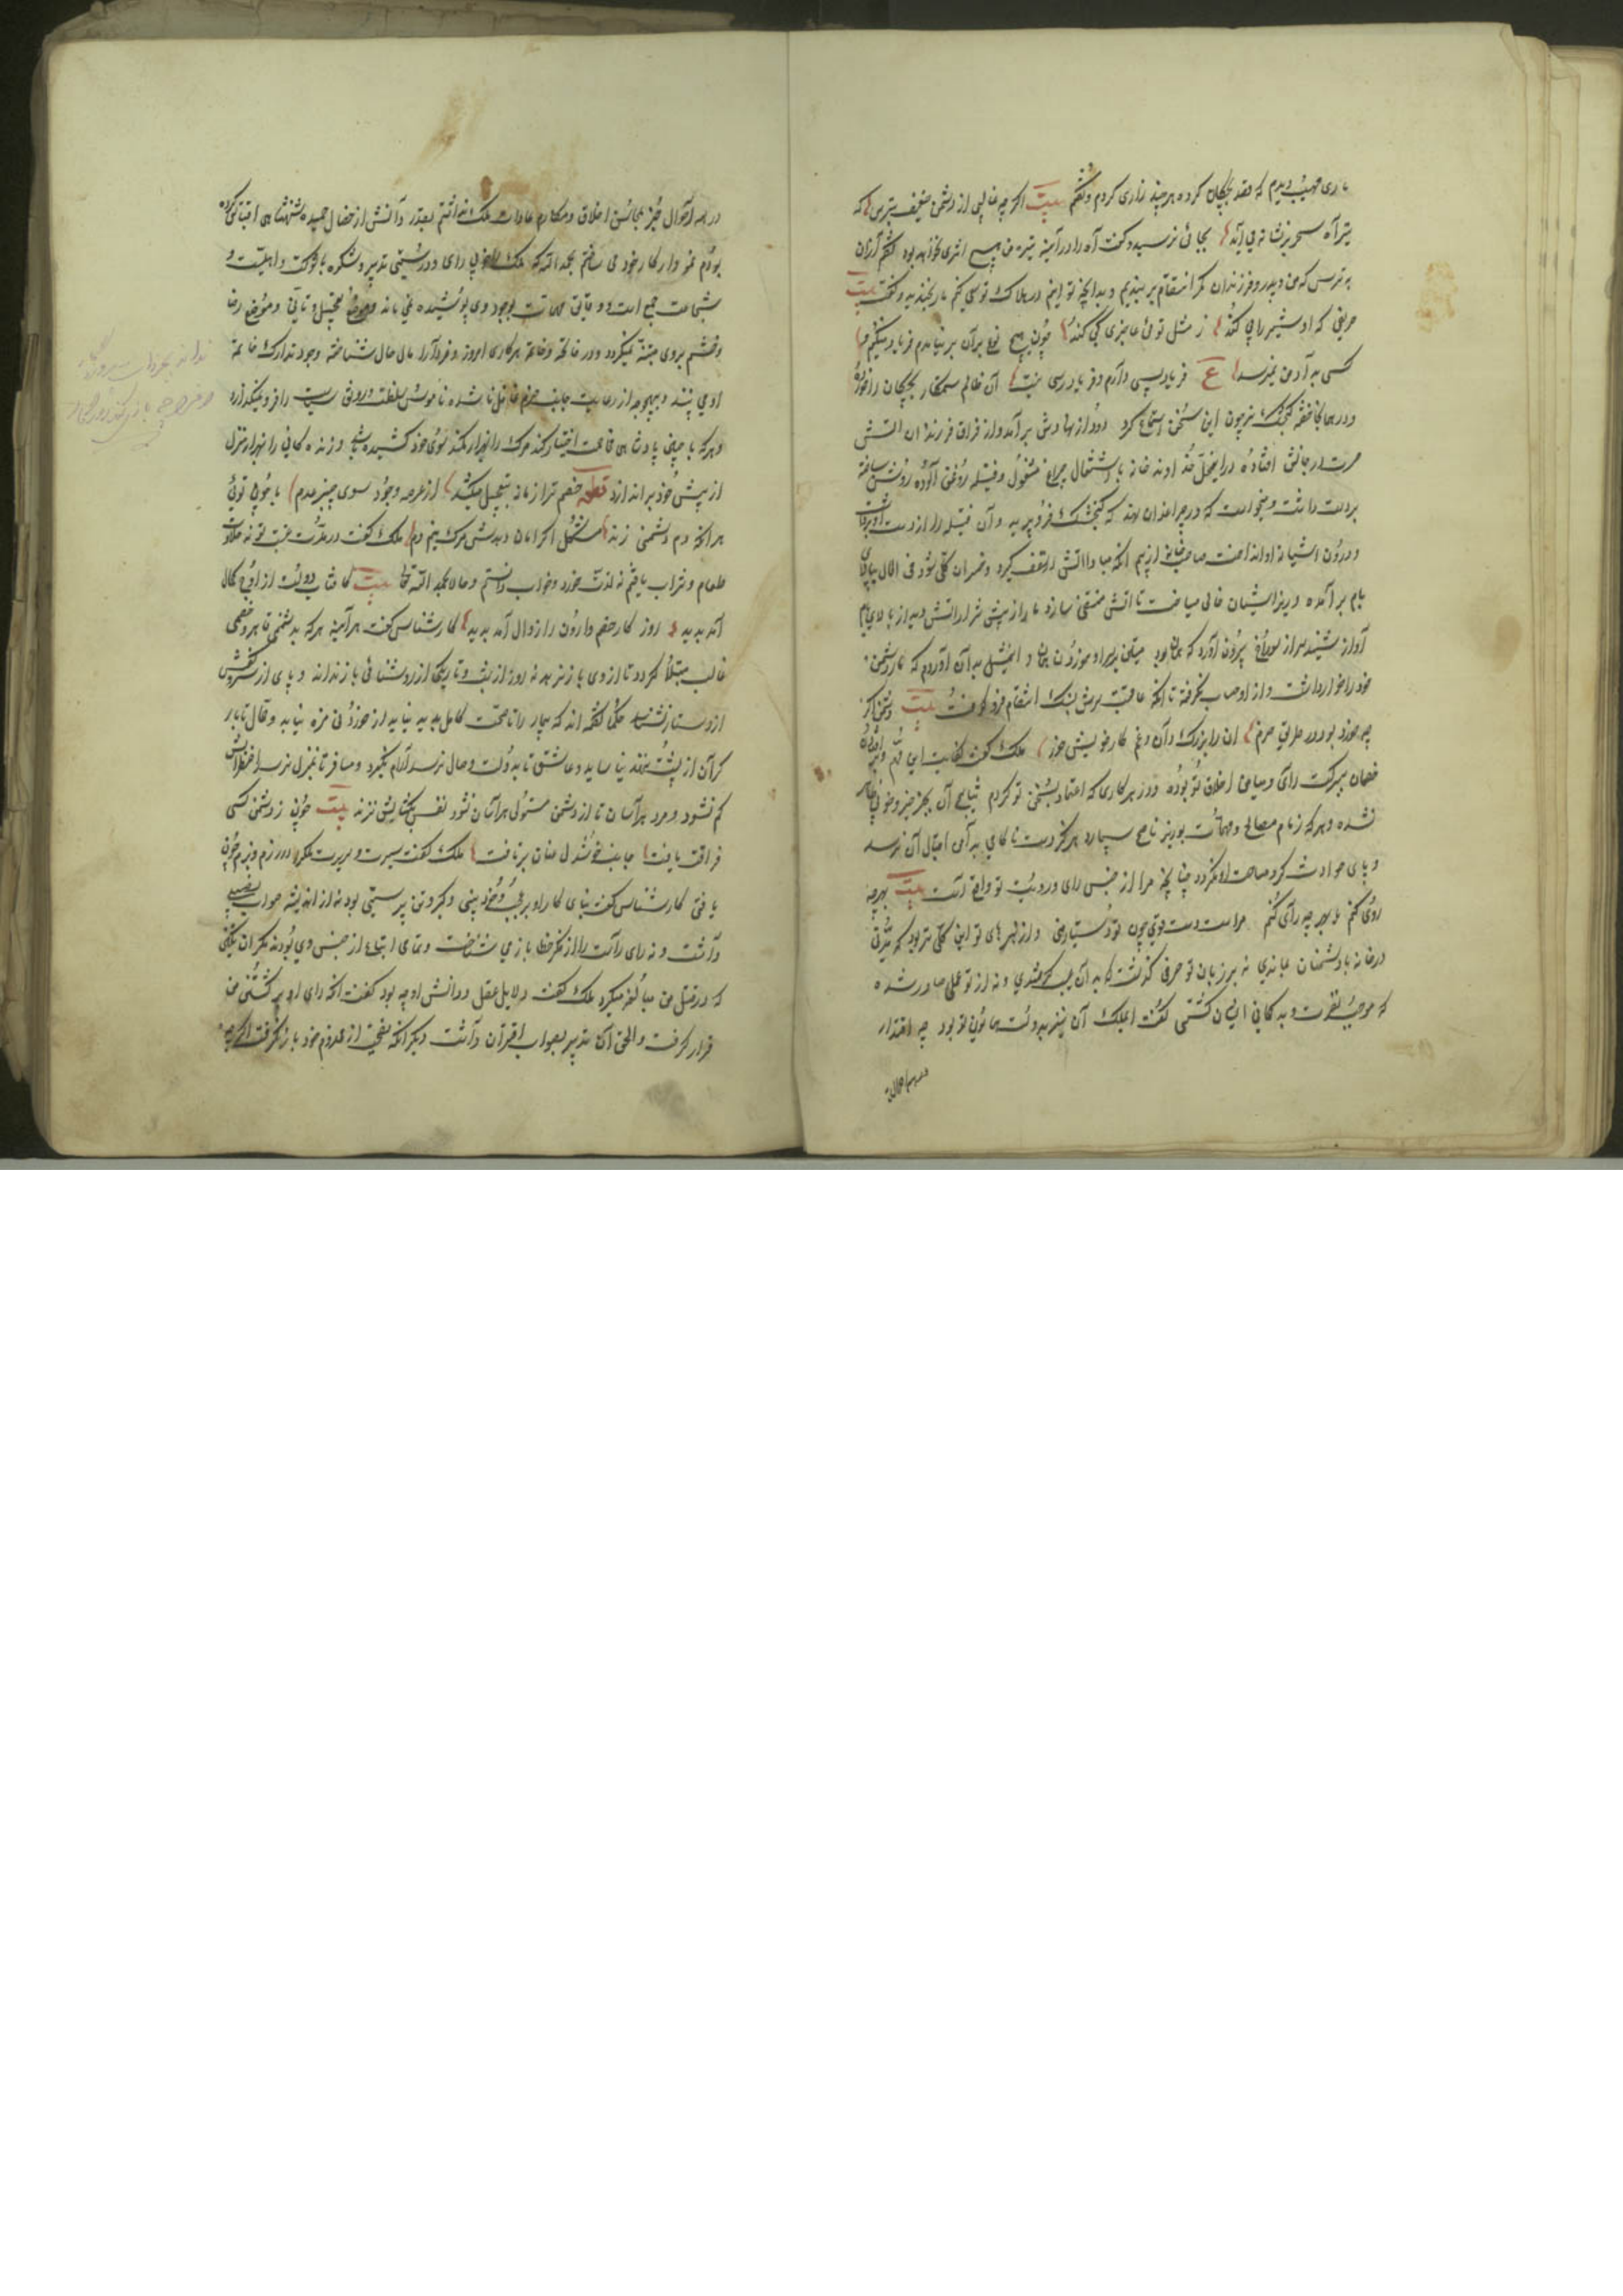 ماری مهیب دیدم که قصد بچگان کرده هر چند زاری کردم و گفتم بیت اگر چه غالبی از دشمن ضعیف بترس که
تیر آه سحر بر نشانه می آید بجائی نرسید و گفت آه را در آینه تیره من هیچ اثری نخواهد بود گفتم از آن
بترس که من و پدر و فرزندان کمر انتقام بر بندیم و بدانچه توانیم در هلاک تو سعی کنیم مار بخندید و گفت بیت
حریفی که او شیر را پی کند ز مثل توئی عاجزی کی کند چون هیچ نوع بر آن بر نیامدم فریاد میکنم و
کسی به آد من نمیرسد ع فریاد بسی دارم و فریاد رسی نیست آن ظالم ستمکار بچگان را خورده
و در همانجا خفته گنجشک نر چون این سخن استماع کرد دود از نهادش بر آمد و از فراق فرزندان آتش
حسرت در جانش افتاده در این محل خداوند خانه باشتعال چراغ مشغول و فتیله روغن آلوده روشن ساخته
بر دست داشت و میخواست که در چراغدان نهد که گنجشک فرو پرید و آن فتیله را از دست او بر داشت
و درون آشیانه انداخت صاحب خانه از بیم آنکه مبادا آتش در سقف گیرد و خسران کلی شود فی الحال ببالای
بام بر آمده و زیر آشیان خالی میساخت تا آتش منتفی سازد مار از پیش شرر آتش دید و از بالای بام
آواز شنید سر از سوراخ بیرون آورد که همان بود میتین بر سر او خوردن همان و این مثل بدان آوردم که مار دشمن
خود را خوار داشت و از او حساب نگرفته تا آنکه عاقبت سرش بسنگ انتقام فرو کوفت بیت دشمن اگر
چه خورد بود در طریق حزم آن را بزرگ دان و غم کار خویش خور ملک گفت کفایت این مهم و بر افتادن
خصمان ببرکت رای و میامن اخلاق تو بوده و در هر کاری که اعتماد بسخن تو کردم نتایج آن بجز خیر و خوبی ظاهر
نشده و هر که زمام مصالح و مهمات بوزیر ناصح سپارد هرگز دست ناکامی بدامن اقبال آن نرسد
و پای حوادث گرد ساحت او نگردد چنانچه مرا از حسن رای و رویت تو واقع است بیت بهر چه
روی کنم یا بهر چه رای کنم مراست دست قوی چون تو دستیار منی و از هنرهای تو این کلی تر بود که مدتی
در خانه دشمنان بماندی نه بر زبان تو حرفی گذشت که به آن عیب کردندی و نه از تو عملی صادر شده
که موجب نفرت و بد گمانی ایشان گشتی گفت ای ملک آن نیز بدولت همایون تو بود چه اقتدار
در همه احوال
در همه احوال جز بمحاسن اخلاق و مکارم عادات ملک نداشتم بقدر دانش از خصال حمیده شهنشاهی اقتباس کرده
بودم نمودار کار خود می ساختم بحمد الله که ملک را خوبی رای و درستی تدبیر و شکوه با شوکت و اهلیت و
شجاعت جمع است و دقایق مهمات بوجود وی پوشیده نمی ماند و موضع تعجیل و تانی و موضع رضا
و خشم بر وی مشتبه نمیگردد و در فاتحه و خاتمه هر کاری امروز و فردا را مآل حال شناخته وجود تدارک خاتمه
او می بیند و بهیچوجه از رعایت جانب حزم غافل نا شده ناموس سلطنت و رونق سیاست را فرو نمیگذارد
و هر که با چنین پادشاهی مخاصمت اختیار کند مرگ را بهزار کمند سوی خود کشیده باشد و زندگانی را بهزار منزل
از پیش خود براند از د قطعه خصم ترا زمانه بتعجیل میکشد از عرصه وجود سوی چنبر عدم با چون توئی
هر آنکه دم دشمنی زند مشکل اگر امان دهدش مرگ نیم دم ملک گفت در مدت غیبت تو نه حلاوت
طعام و شراب یافتم نه لذت خورد و خواب دانستم و حالا بحمد الله تعالی بیت کافتاب دولت از اوج کمال
آمد پدید روز کار خصم وارون را زوال آمد پدید کارشناس گفت هر آینه هر که بدشمنی قاهر و خصمی
غالب مبتلا گردد تا از وی باز نرهد نه روز از شب و تاریکی از روشنائی باز نداند و پای از سر و کفش
از دستار نشناسد حکما گفته اند که بیمار را تا صحت کامل پدید نیاید از خوردنی مزه نیابد و حمال تا بار
گران از پشت ننهد نیاساید و عاشق تا بدولت وصال نرسد آرام نگیرد و مسافر تا بمنزل نرسد اضطرابش
کم نشود و مرد هراسان تا از دشمن مستولی هراسان نشود نفس بگشایش نزند بیت چون ز دشمن کسی
فراقت یافت جانب خوشدلی عنان بر تافت ملک گفت سیرت و سریرت ملک در رزم و بزم چون
یافتی کارشناس گفت بنای کار او بر عجب و خودبینی و کبر و تن پرستی بود نه از اندیشه صواب نصیبی
داشت و نه رای راست را از فکر خطا باز می شناخت و تمامی اتباع از جنس وی بودند مگر آن یکی
که در قتل من مبالغه میکرد ملک گفت دلایل عقل و دانش او چه بود گفت آنکه رای او بر کشتن من
قرار گرفت و الحق آن تدبیر بصواب اقتران داشت و دیگر آنکه نصیحت از مخدوم خود باز نگرفت اگر چه